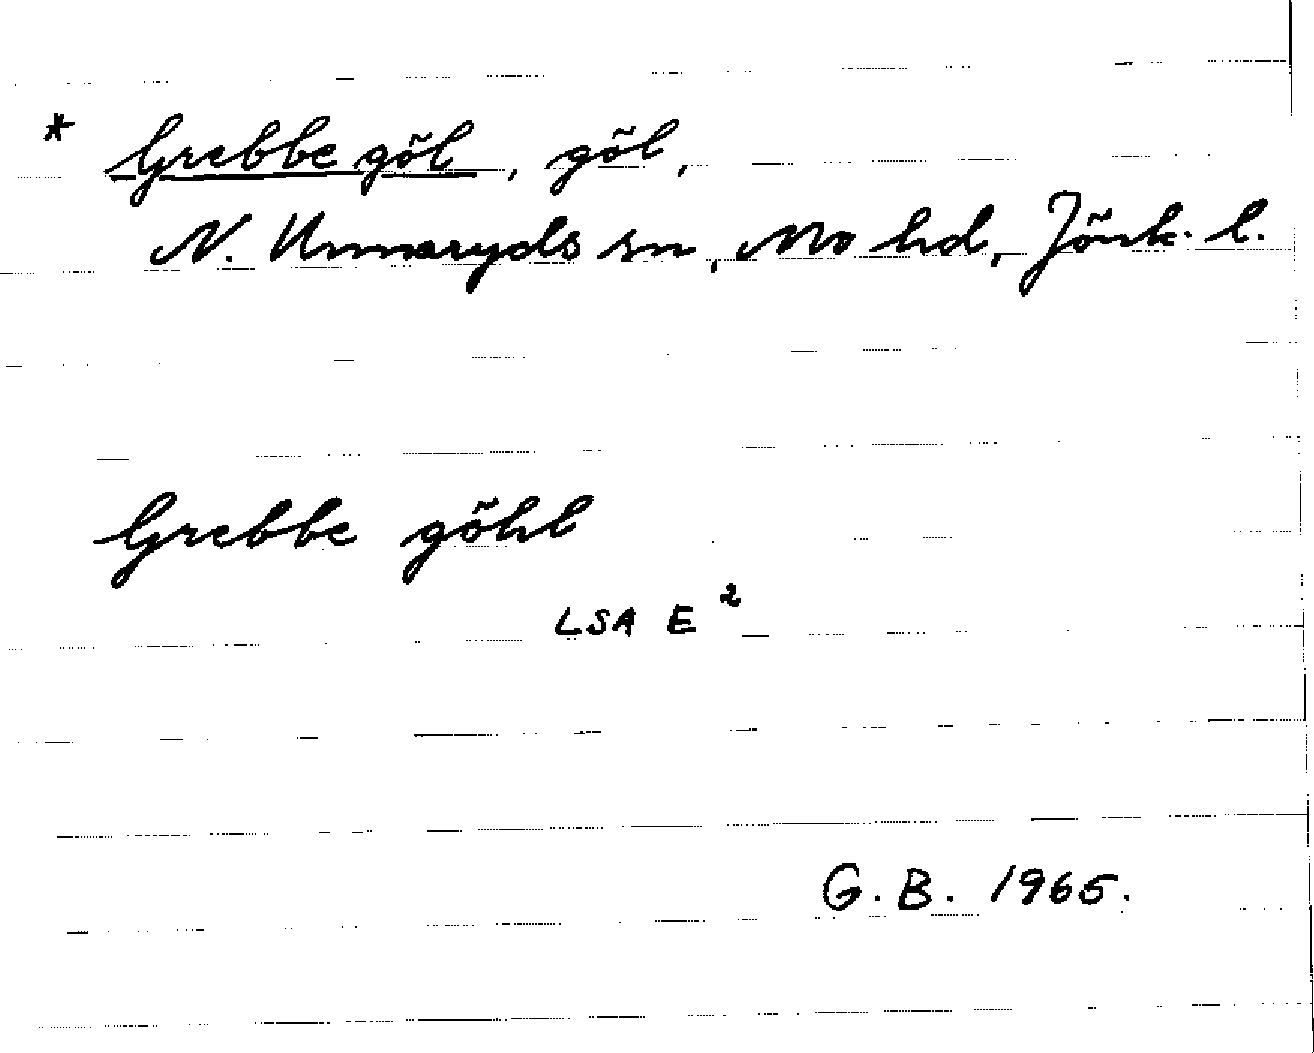 * Grebbe göl, göl,
N. Unnaryds sn, Mo hd, Jönk. l.
Grebbe göhl
LSA E²
G.B. 1965.